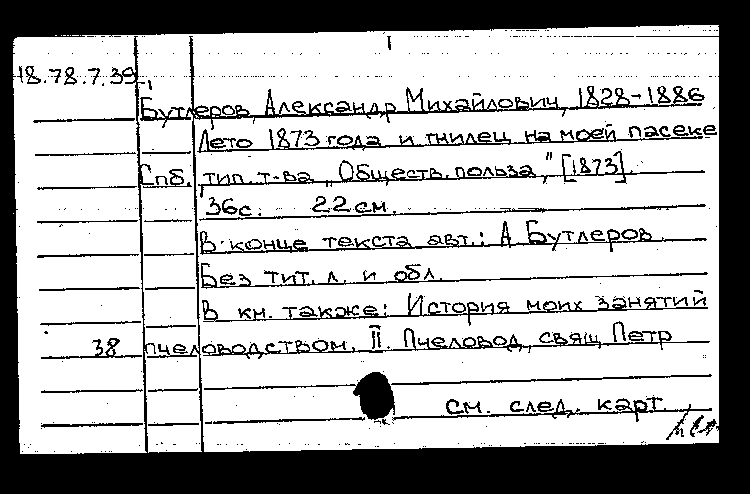 18.78.7.39
Бутлеров, Александр Михайлович, 1828-1886
Лето 1873 года и гнилец на моей пасеке
Спб., тип. т-ва „Обществ. польза“, [1873].
36с. 22см.
В конце текста авт.: А Бутлеров
Без тит. л. и обл.
В кн. также: История моих занятий
38 пчеловодством. II. Пчеловод, свящ. Петр
см. след. карт.